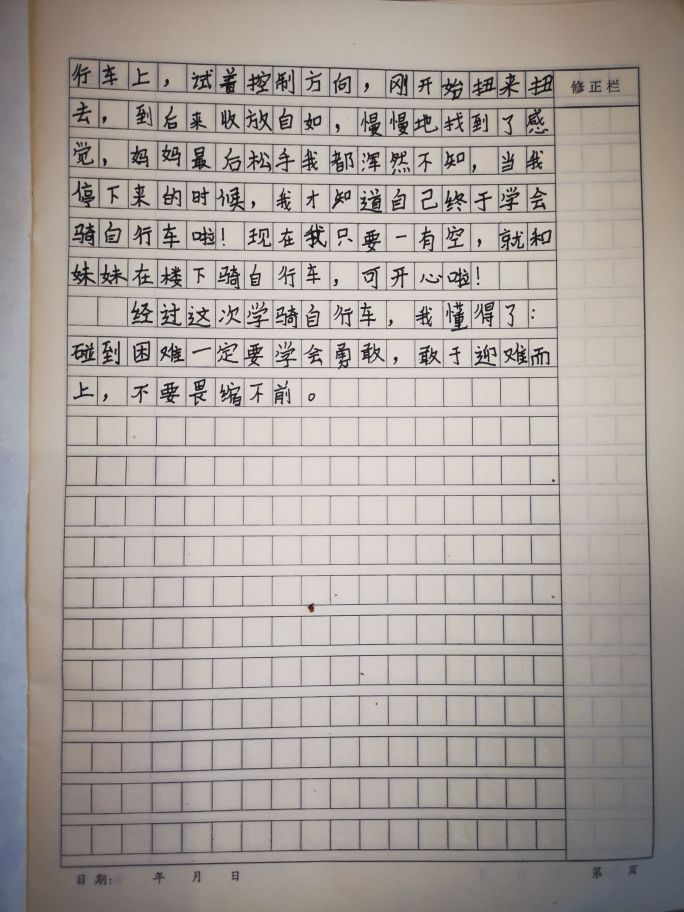 行车上，试着控制方向，刚开始扭来扭
修正栏
去，到后来收放自如，慢慢地找到了感
觉，妈妈最后松手我都浑然不知，当我
停下来的时候，我才知道自己终于学会
骑自行车啦！现在我只要一有空，就和
妹妹在楼下骑自行车，可开心啦！
经过这次学骑自行车，我懂得了：
碰到困难一定要学会勇敢，敢于迎难而
上，不要畏缩不前。
日期： 年 月 日 第 页